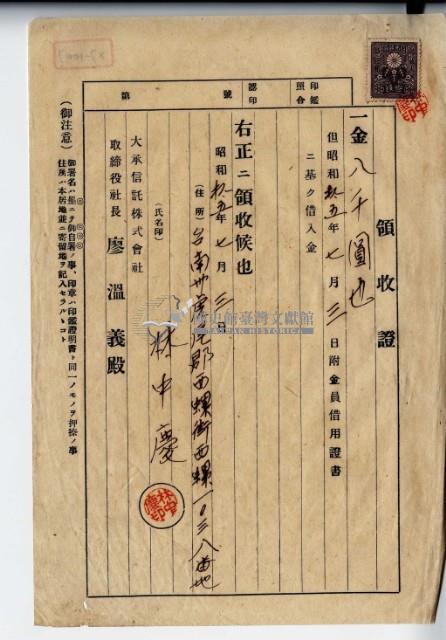 領收證
一金八千圓也
但昭和拾五年七月三日附金員借用證書
ニ基ク借入金
右正ニ領收候也
昭和拾五年七月三日
(住所)台南州虎尾郡西螺街西螺一〇三八番地
(氏名印)林中慶
大承信託株式會社
取締役社長 廖溫義殿
第 號
認印
印鑑照合
(御注意)
御署名ハ必ニ御自署ノ事、印章ハ印鑑證明書ト同一ノモノヲ押捺ノ事
住所ハ本居地並ニ寄留地ヲ記入セラルヽコト
國史館臺灣文獻館
TAIWAN HISTORICA